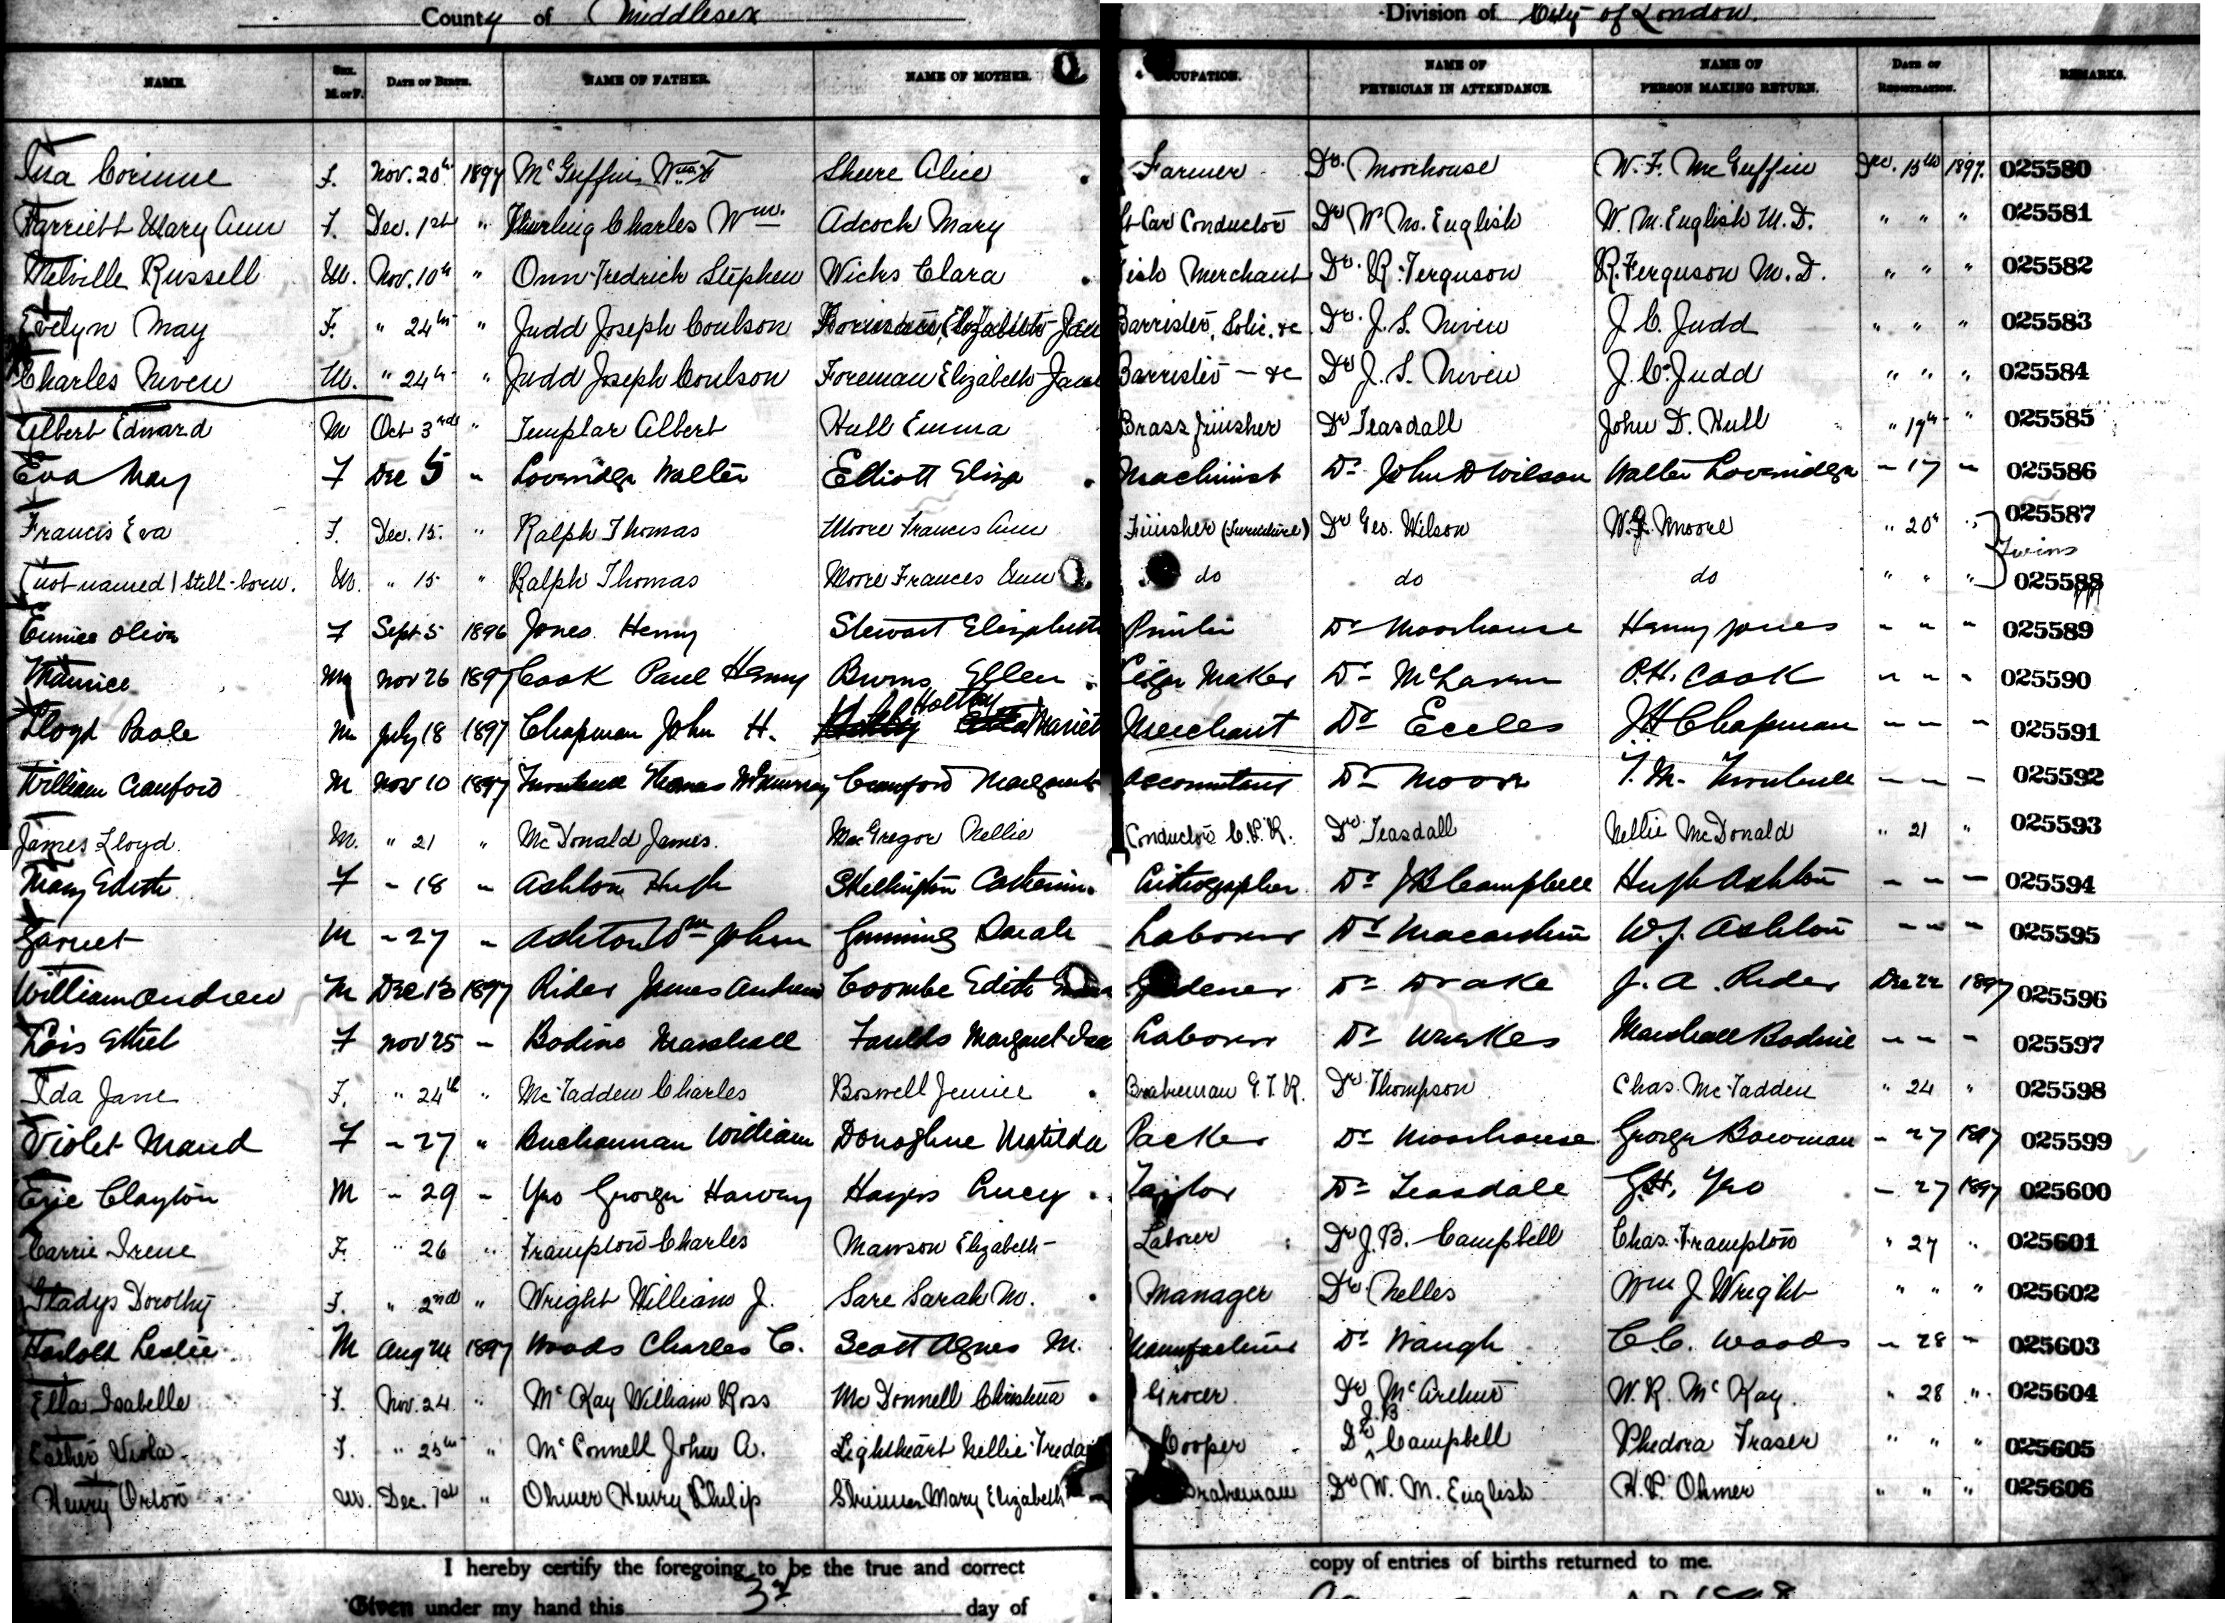 County of Middlesex Division of City of London.
NAME. SEX. M. or F. DATE OF BIRTH. NAME OF FATHER. NAME OF MOTHER. OCCUPATION. NAME OF PHYSICIAN IN ATTENDANCE. NAME OF PERSON MAKING RETURN. DATE OF REGISTRATION. REMARKS.
Ina Corinne F. Nov. 20th 1897 McGuffin, Wm. F Shere Alice Farmer Dr. Moorhouse W. F. McGuffin Dec. 15th 1897. 025580
Harriett Mary Ann F. Dec. 1st " Charles Wm. Adcock Mary St Car Conductor Dr W. M. English W. M. English M.D. " " " 025581
Melville Russell M. Nov. 10th " Onn Fredrich Stephen Wicks Clara Fish Merchant Dr. R. Ferguson R. Ferguson M.D. " " " 025582
Evelyn May F. " 24th " Judd Joseph Coulson Elizabeth Jane Barrister, Solic. &c Dr. J. S. Niven J. C. Judd " " " 025583
Charles Niven M. " 24th " Judd Joseph Coulson Foreman Elizabeth Jane Barrister - &c Dr J. S. Niven J. C. Judd " " " 025584
Albert Edward M Oct 3rd " Templar Albert Hull Emma Brass finisher Dr Teasdall John D. Hull " 17th " 025585
Eva May F Dec 5 " Loveridge Walter Elliott Eliza Machinist Dr John D Wilson Walter Loveridge - 17 - 025586
Francis Eva F. Dec. 15. " Ralph Thomas Moore Frances Ann Finisher (Furniture) Dr Geo. Wilson W. J. Moore " 20th " 025587
Twins
(not named) Still-born. M. " 15 " Ralph Thomas Moore Frances Ann do do do " " " 025588
Eunice Oliva F Sept 5 1896 Jones Henry Stewart Elizabeth Printer Dr Moorhouse Henry Jones - - - 025589
Maurice M Nov 26 1897 Cook Paul Henry Burns Ellen Cigar Maker Dr McLaren P. H. Cook " " " 025590
Lloyd Poole M July 18 1897 Chapman John H. Holtby Harriet Merchant Dr Eccles J H Chapman - - - 025591
William Crawford M Nov 10 1897 Turnbull Thomas McMurray Crawford Margaret Accountant Dr Moore T. M. Turnbull - - - 025592
James Lloyd. M. " 21 " McDonald James. MacGregor Nellie Conductor C.P.R. Dr Teasdall Nellie McDonald " 21 " 025593
Mary Edith F - 18 - Ashton Hugh Skellington Catherine Lithographer Dr J B Campbell Hugh Ashton - - - 025594
Garnet M - 27 - Ashton Wm John Sarah Laborer Dr W. J. Ashton - - - 025595
William Andrew M Dec 13 1897 Rider James Andrew Coombe Edith Gardener Dr Drake J. A. Rider Dec 22 1897 025596
Lois Ethel F Nov 25 - Bodine Marshall Faulds Margaret Laborer Dr Weekes Marshall Bodine - - - 025597
Ida Jane F. " 24th " McFadden Charles Boswell Jennie Brakeman G.T.R. Dr Thompson Chas. McFadden " 24 " 025598
Violet Maud F - 27 " Buchannan William Donoghue Matilda Packer Dr Moorhouse George Bowman - 27 1897 025599
Eric Clayton M - 29 - Yeo George Harvey Hayes Lucy Tailor Dr Teasdale G. H. Yeo - 27 1897 025600
Carrie Irene F. " 26 " Frampton Charles Mawson Elizabeth Laborer Dr J. B. Campbell Chas. Frampton " 27 " 025601
Gladys Dorothy F. " 2nd " Wright William J. Sare Sarah M. Manager Dr Nelles Wm J Wright " " " 025602
Harold Leslie M Aug 24 1897 Woods Charles C. Scott Agnes M. Manufacturer Dr Waugh C. C. Woods - 28 - 025603
Ella Isabelle F. Nov. 24 " McKay William Ross McDonnell Christina Grocer Dr McArthur W. R. McKay " 28 " 025604
Esther Viola F. " 25th " McConnell John A. Lightheart Nellie Freda Cooper Dr J. B Campbell Phedora Fraser " " " 025605
Henry Orton M. Dec. 1st " Ohmer Henry Philip Mary Elizabeth Brakeman Dr W. M. English H. P. Ohmer " " " 025606
I hereby certify the foregoing to be the true and correct copy of entries of births returned to me.
Given under my hand this 3rd day of A.D. 1898